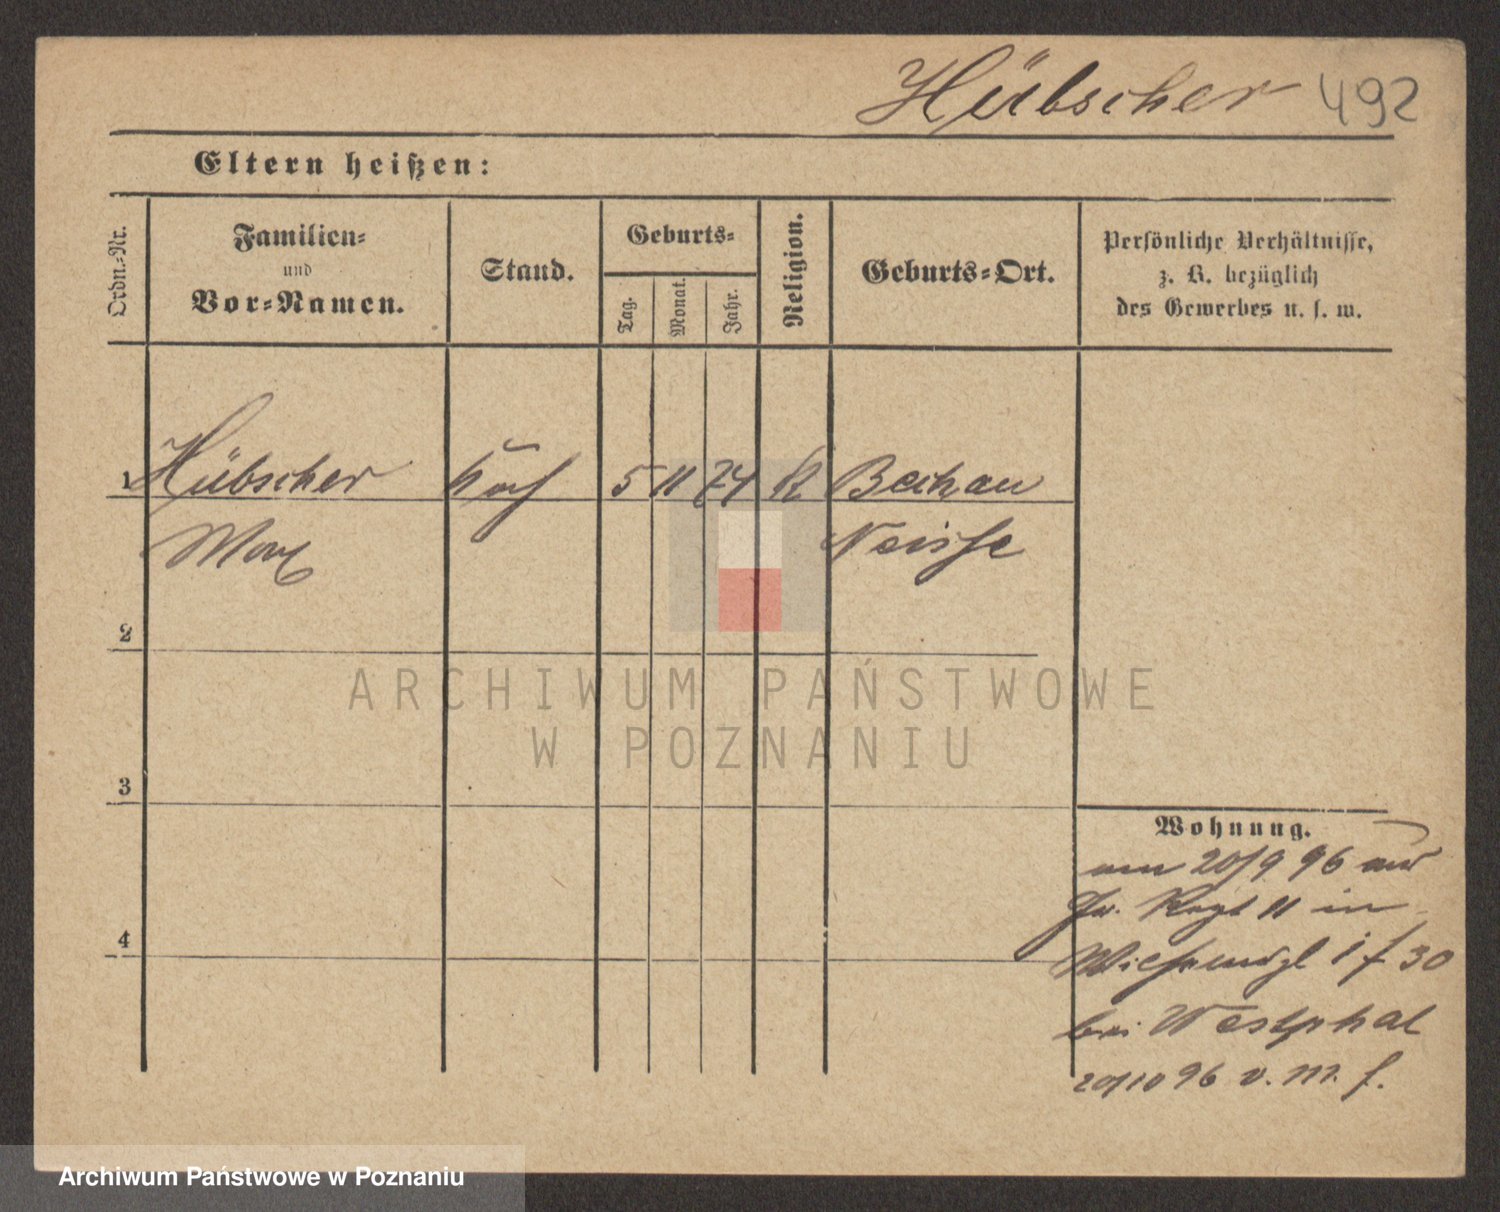 Hübscher 492
Eltern heißen:
Ordn.-Nr.
Familien-
und
Vor-Namen.
Stand.
Geburts-
Tag.
Monat.
Jahr.
Religion.
Geburts-Ort.
Persönliche Verhältnisse,
z. B. bezüglich
des Gewerbes u. s. w.
1 Hübscher Koch 5 11 74 K Bechau
Max Neisse
2
3
4
Wohnung.
am 20/9 96 aus
11 in
30
bei Westphal
20/10 96 v. M. f.
ARCHIWUM PAŃSTWOWE
W POZNANIU
Archiwum Państwowe w Poznaniu